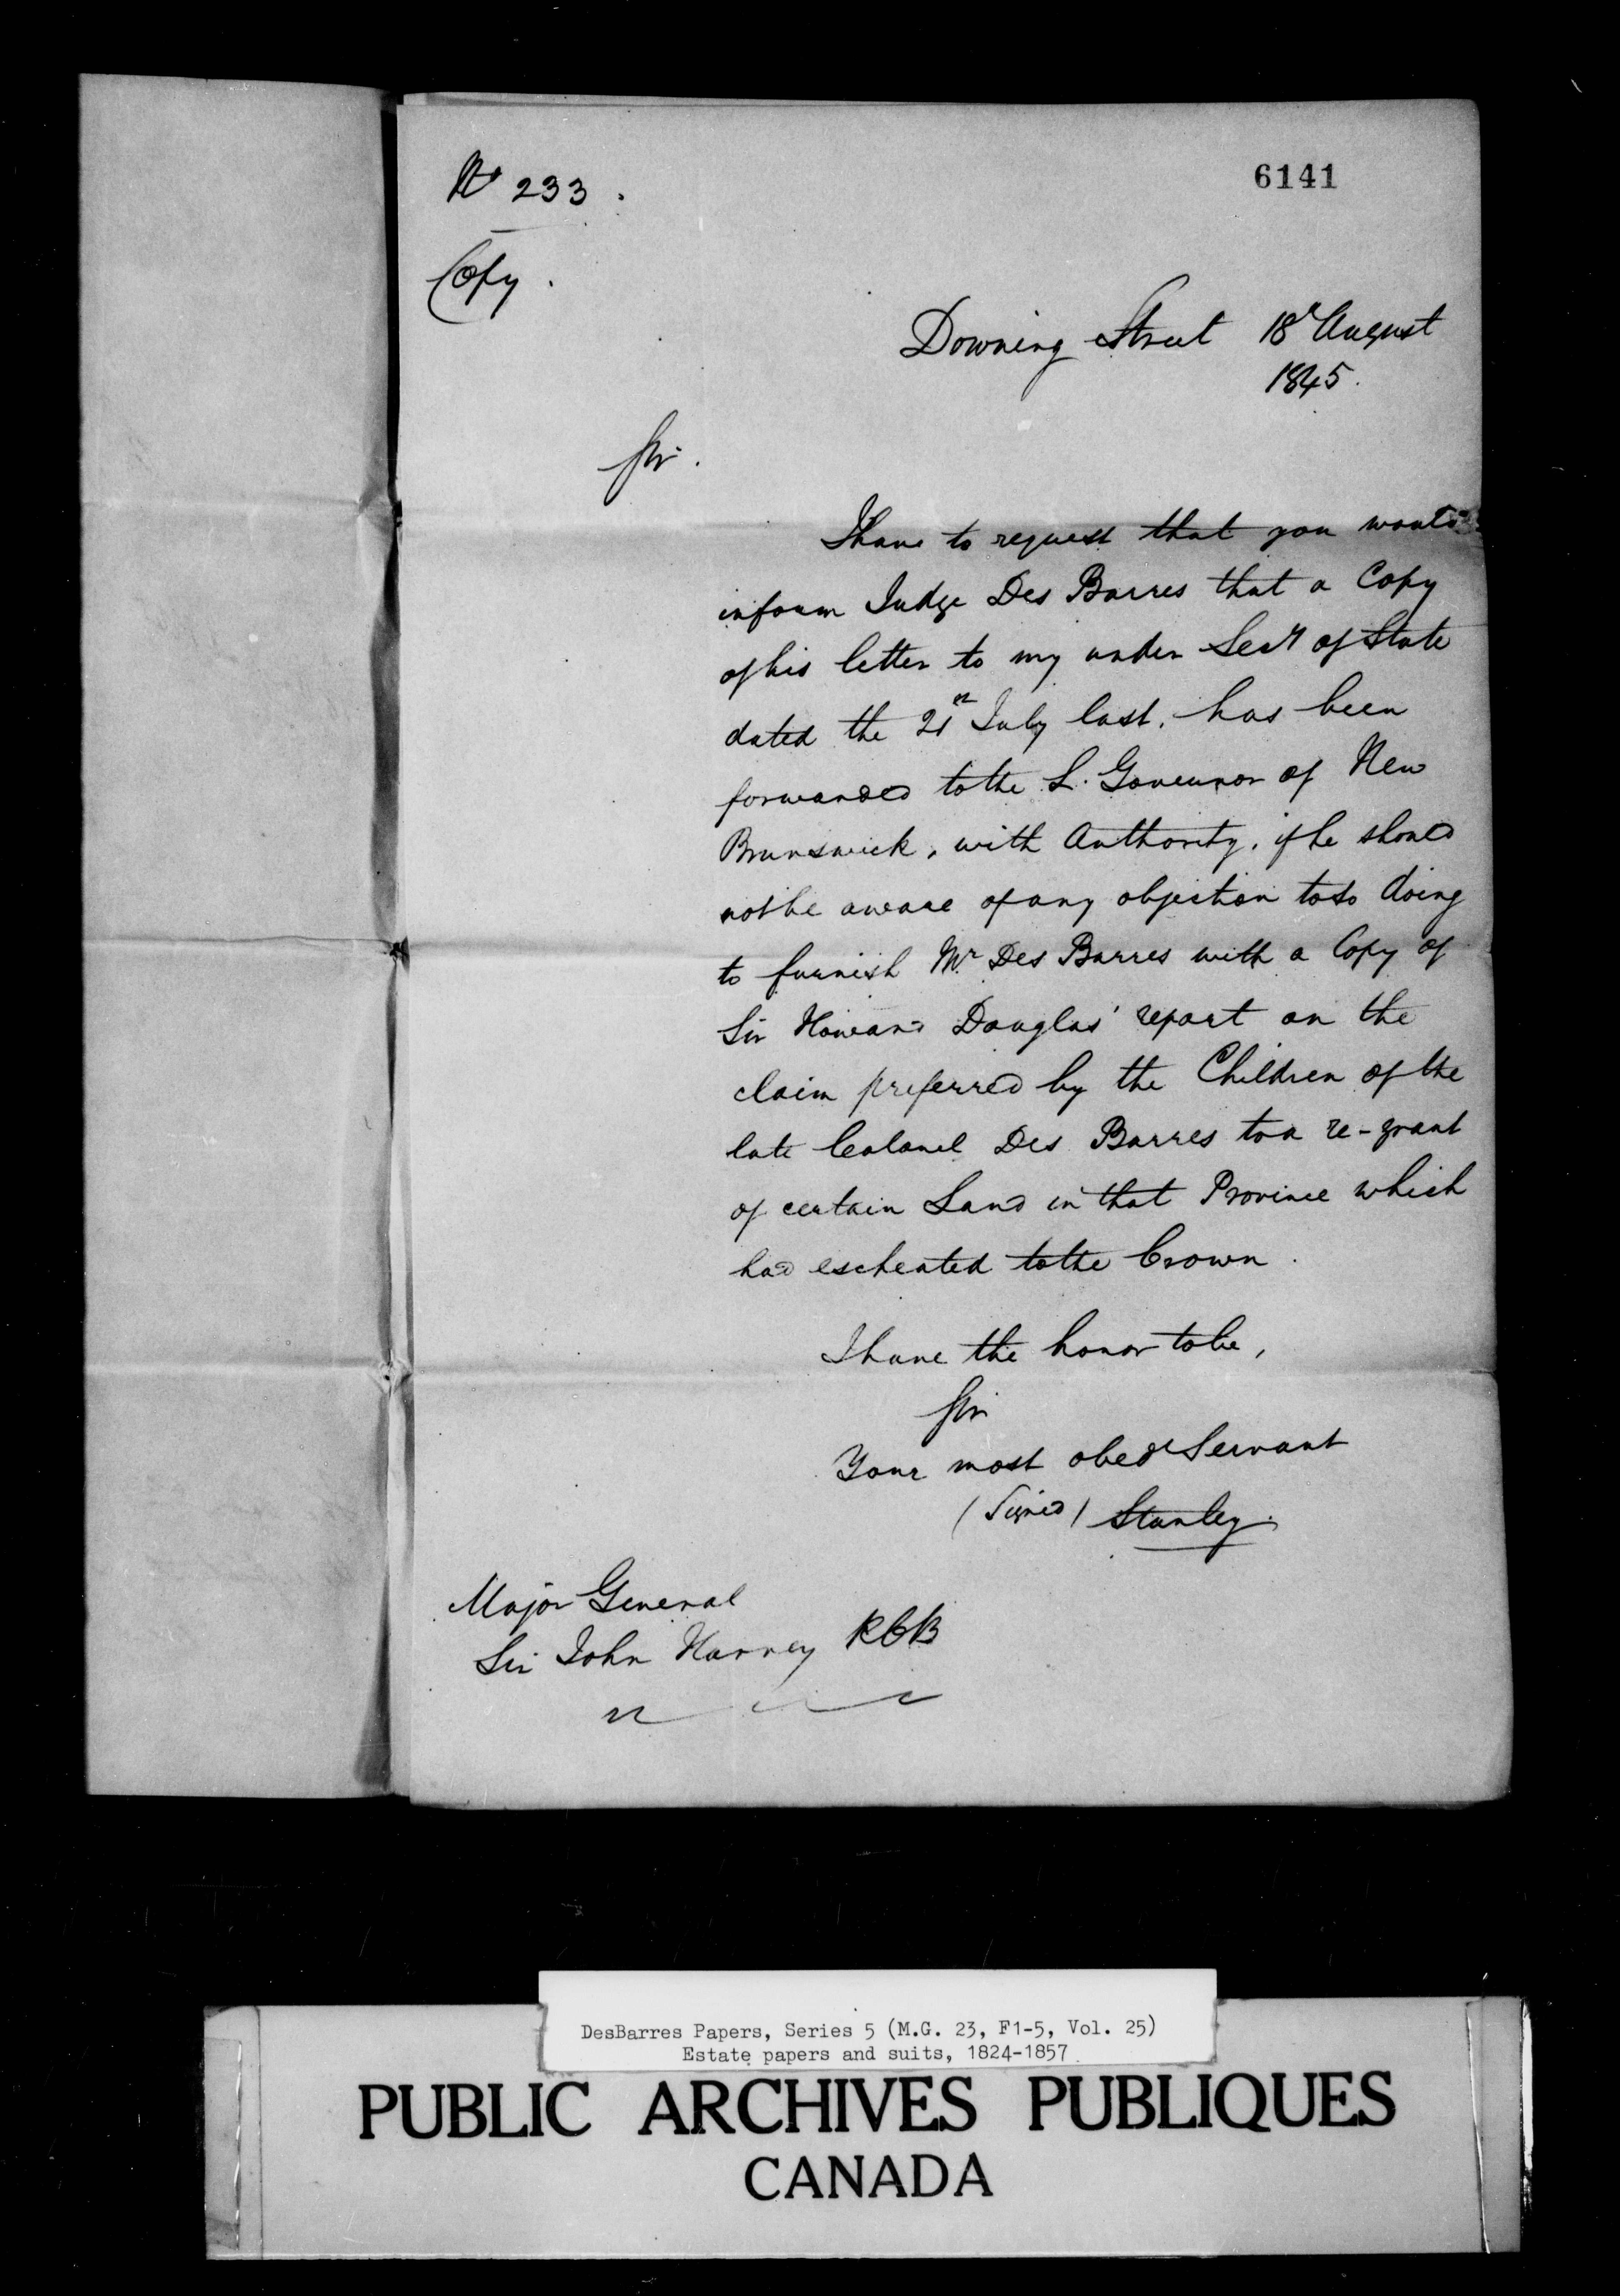 No 233.
6141
Copy.
Downing Street 18th August
1845.
Sir.
I have to request that you would
inform Judge Des Barres that a Copy
of his letter to my under Secy of State
dated the 21st July last, has been
forwarded to the L. Governor of New
Brunswick, with Authority, if he should
not be aware of any objection to so doing
to furnish Mr Des Barres with a Copy of
Sir Howard Douglas' report on the
claim preferred by the Children of the
late Colonel Des Barres to a re-grant
of certain Land in that Province which
had escheated to the Crown.
I have the honor to be,
Sir
Your most obedt Servant
(Signed) Stanley.
Major General
Sir John Harvey KCB
DesBarres Papers, Series 5 (M.G. 23, F1-5, Vol. 25)
Estate papers and suits, 1824-1857
PUBLIC ARCHIVES PUBLIQUES
CANADA